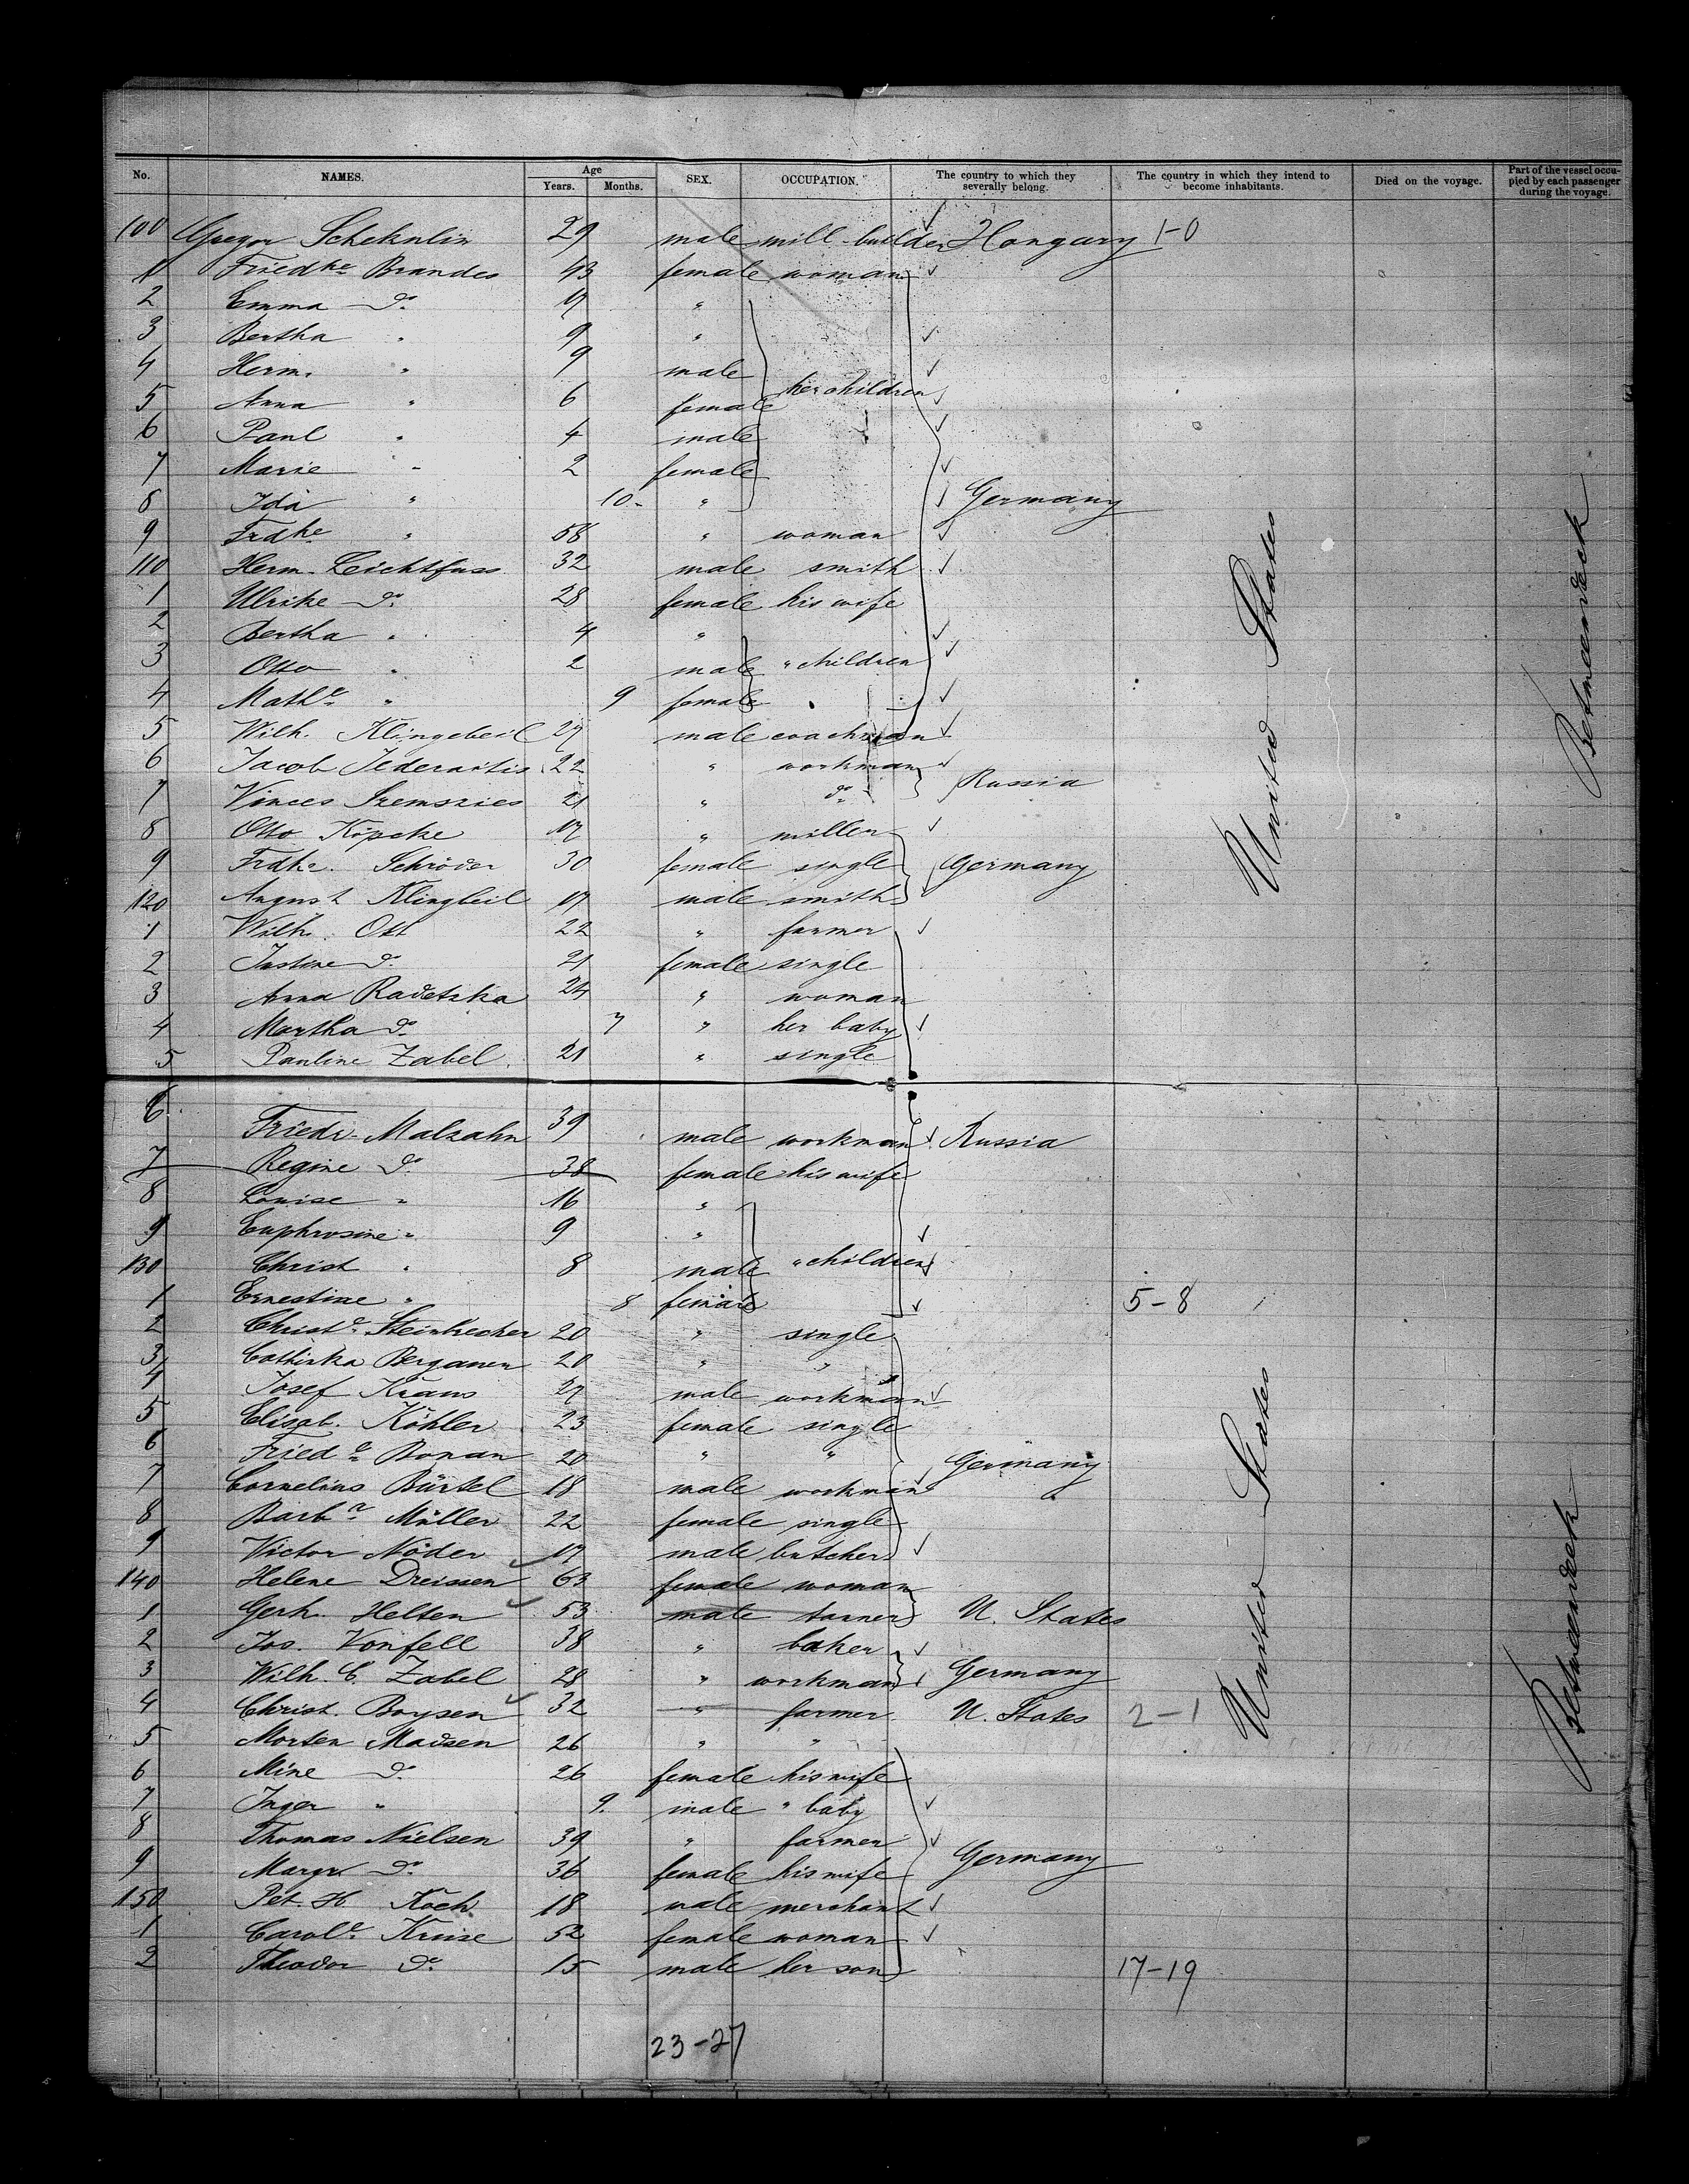 No. NAMES. Age Years. Months. SEX. OCCUPATION. The country to which they severally belong. The country in which they intend to become inhabitants. Died on the voyage. Part of the vessel occupied by each passenger during the voyage.
100 Gregor Scheknlin 29 male mill-builder Hongary 1-0
1 Friedke Brandes 43 female woman
2 Emma do 17 "
3 Bertha " 9 "
4 Herm. " 9 male
her children
5 Anna " 6 female
6 Paul " 4 male
7 Marie " 2 female
8 Ida " 10 " Germany
9 Frdke " 58 " woman
110 Herm. Leichtfuss 32 male smith
1 Ulrike do 28 female his wife
2 Bertha " 4 "
3 Otto " 2 male " children
4 Mathe " 9 female
5 Wilh. Klingebeil 27 male coachman
6 Jacob 22 " workman
Russia
7 Vinces 21 " do
8 Otto Köpcke 17 " miller
9 Frdke. Schröder 30 female single Germany
120 August Klingbeil 17 male smith
1 Wilh. Ott 22 " farmer
2 Justine do 21 female single
3 Anna Radetzka 24 " woman
4 Martha do 7 " her baby
5 Pauline Zabel 21 " single
United States
Betweendeck
6 Friedr. Malzahn 39 male workman Russia
7 Regine do 38 female his wife
8 Louise " 16 "
9 Euphrosine " 9 "
130 Christ " 8 male " children
1 Ernestine " 8 female 5-8
2 Christe Steinbrecher 20 " single
3 Berganen 20 " "
4 Josef Kraus 27 male workman
5 Elisab. Köhler 23 female single
6 Friede Bonan 20 " " Germany
7 Cornelius Bürtel 18 male workman
8 Barba Müller 22 female single
9 Victor Nöder 17 male butcher
140 Helene Dreissen 63 female woman
1 Gerh. Helten 53 male farmer U. States
2 Jos. Vonfell 38 " baker
3 Wilh. C. Zabel 28 " workman Germany
4 Christ. Boysen 32 " farmer U. States 2-1
5 Morten Madsen 26 " "
6 Mine do 26 female his wife
7 Inger " 9. male " baby
8 Thomas Nielsen 39 " farmer
9 Margr. do 36 female his wife Germany
150 Pet. H. Koch 18 male merchant
1 Carole Kruse 52 female woman
2 Theodor do 15 male her son 17-19
United States
Betweendeck
23-27